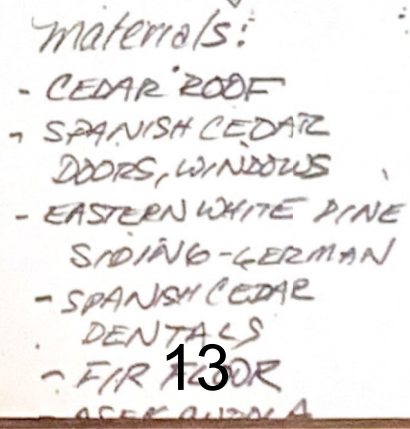 materials:
- CEDAR ROOF
- SPANISH CEDAR
DOORS, WINDOWS
- EASTERN WHITE PINE
SIDING - GERMAN
- SPANISH CEDAR
DENTALS
- FIR FLOOR
13